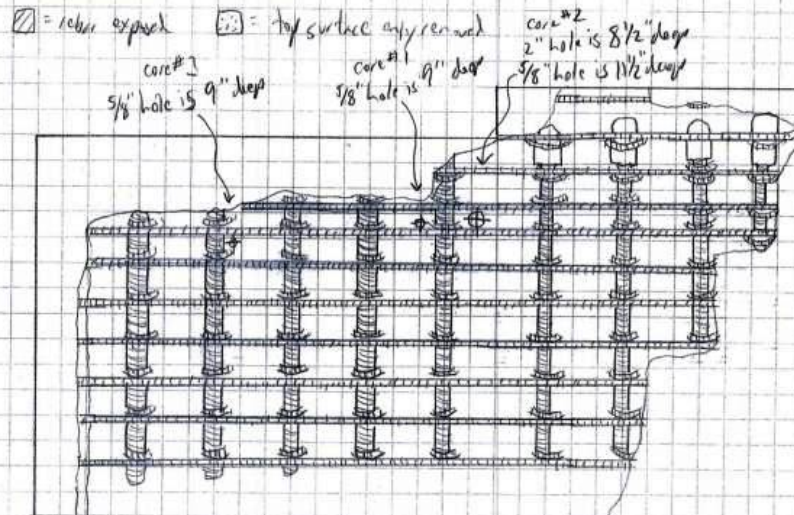 = rebar exposed
= top surface only removed
core #3
5/8" hole is 9" deep
core #1
5/8" hole is 9" deep
core #2
2" hole is 8 1/2" deep
5/8" hole is 11 1/2" deep